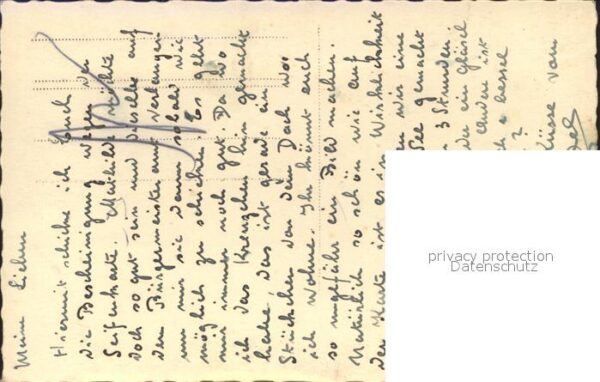 Meine Lieben
Hiermit schicke ich Euch
die Bescheinigung wegen der
Seifenkarte. Mathilde möchte
doch so gut sein und dieselbe auf
dem Bürgermeisteramt verlangen
um mir sie dann sobald wie
möglich zu schicken. Es geht
mir immer noch gut. Da wo
ich das Kreuzchen hin gemacht
habe, das ist gerade ein
Stückchen von dem Dach wo
ich wohne. Ihr könnt euch
so ungefähr ein Bild machen.
Natürlich so schön wie auf
der Karte ist es in Wirklichkeit
wir eine
See gemacht
3 Stunden
ein
ist
?
Grüsse von
privacy protection
Datenschutz